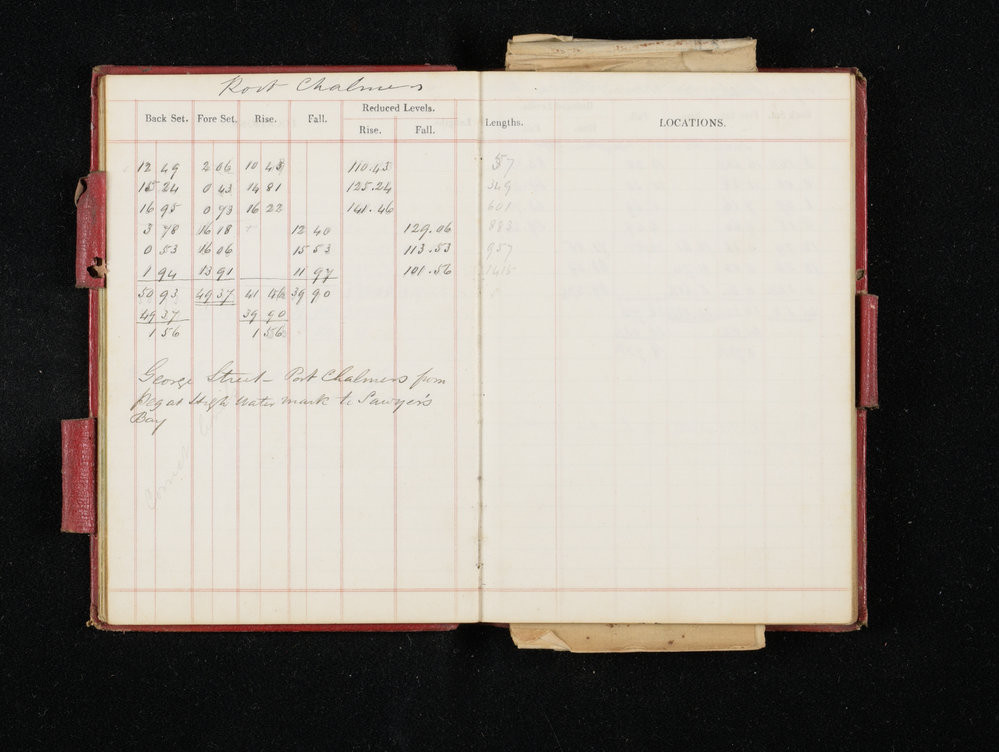 Port Chalmers
Reduced Levels.
Back Set. Fore Set. Rise. Fall. Rise. Fall. Lengths. LOCATIONS.
12 49 2 06 10 43 110.43 57
15 24 0 43 14 81 125.24 349
16 95 0 73 16 22 141.46 601
3 78 16 18 12 40 129.06 883
0 53 16 06 15 53 113.53 957
1 94 13 91 11 97 101.56 1415
50 93 49 37 41 46 39 90
49 37 39 90
1 56 1 56
George Street - Port Chalmers from
Peg at High Water mark to Sawyer's
Bay